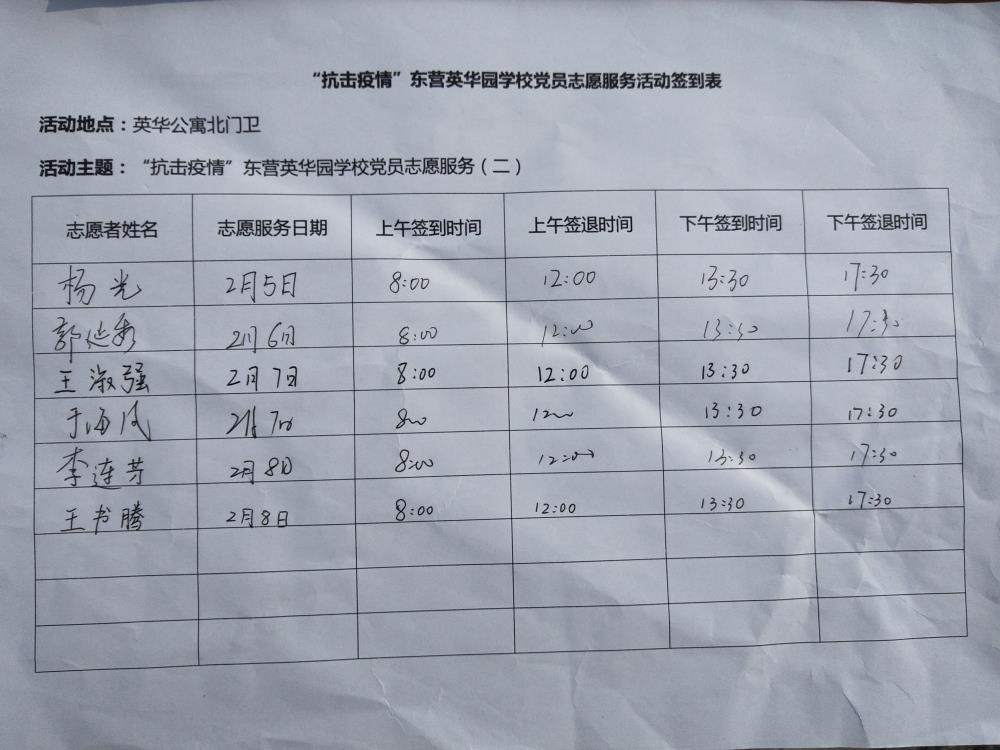 “抗击疫情”东营英华园学校党员志愿服务活动签到表
活动地点：英华公寓北门卫
活动主题：“抗击疫情”东营英华园学校党员志愿服务（二）
志愿者姓名 志愿服务日期 上午签到时间 上午签退时间 下午签到时间 下午签退时间
杨光 2月5日 8:00 12:00 13:30 17:30
郭延秀 2月6日 8:00 12:00 13:30 17:30
王淑强 2月7日 8:00 12:00 13:30 17:30
于海凤 2月7日 800 1200 13:30 17:30
李连芳 2月8日 8:00 12:00 13:30 17:30
王书腾 2月8日 8:00 12:00 13:30 17:30